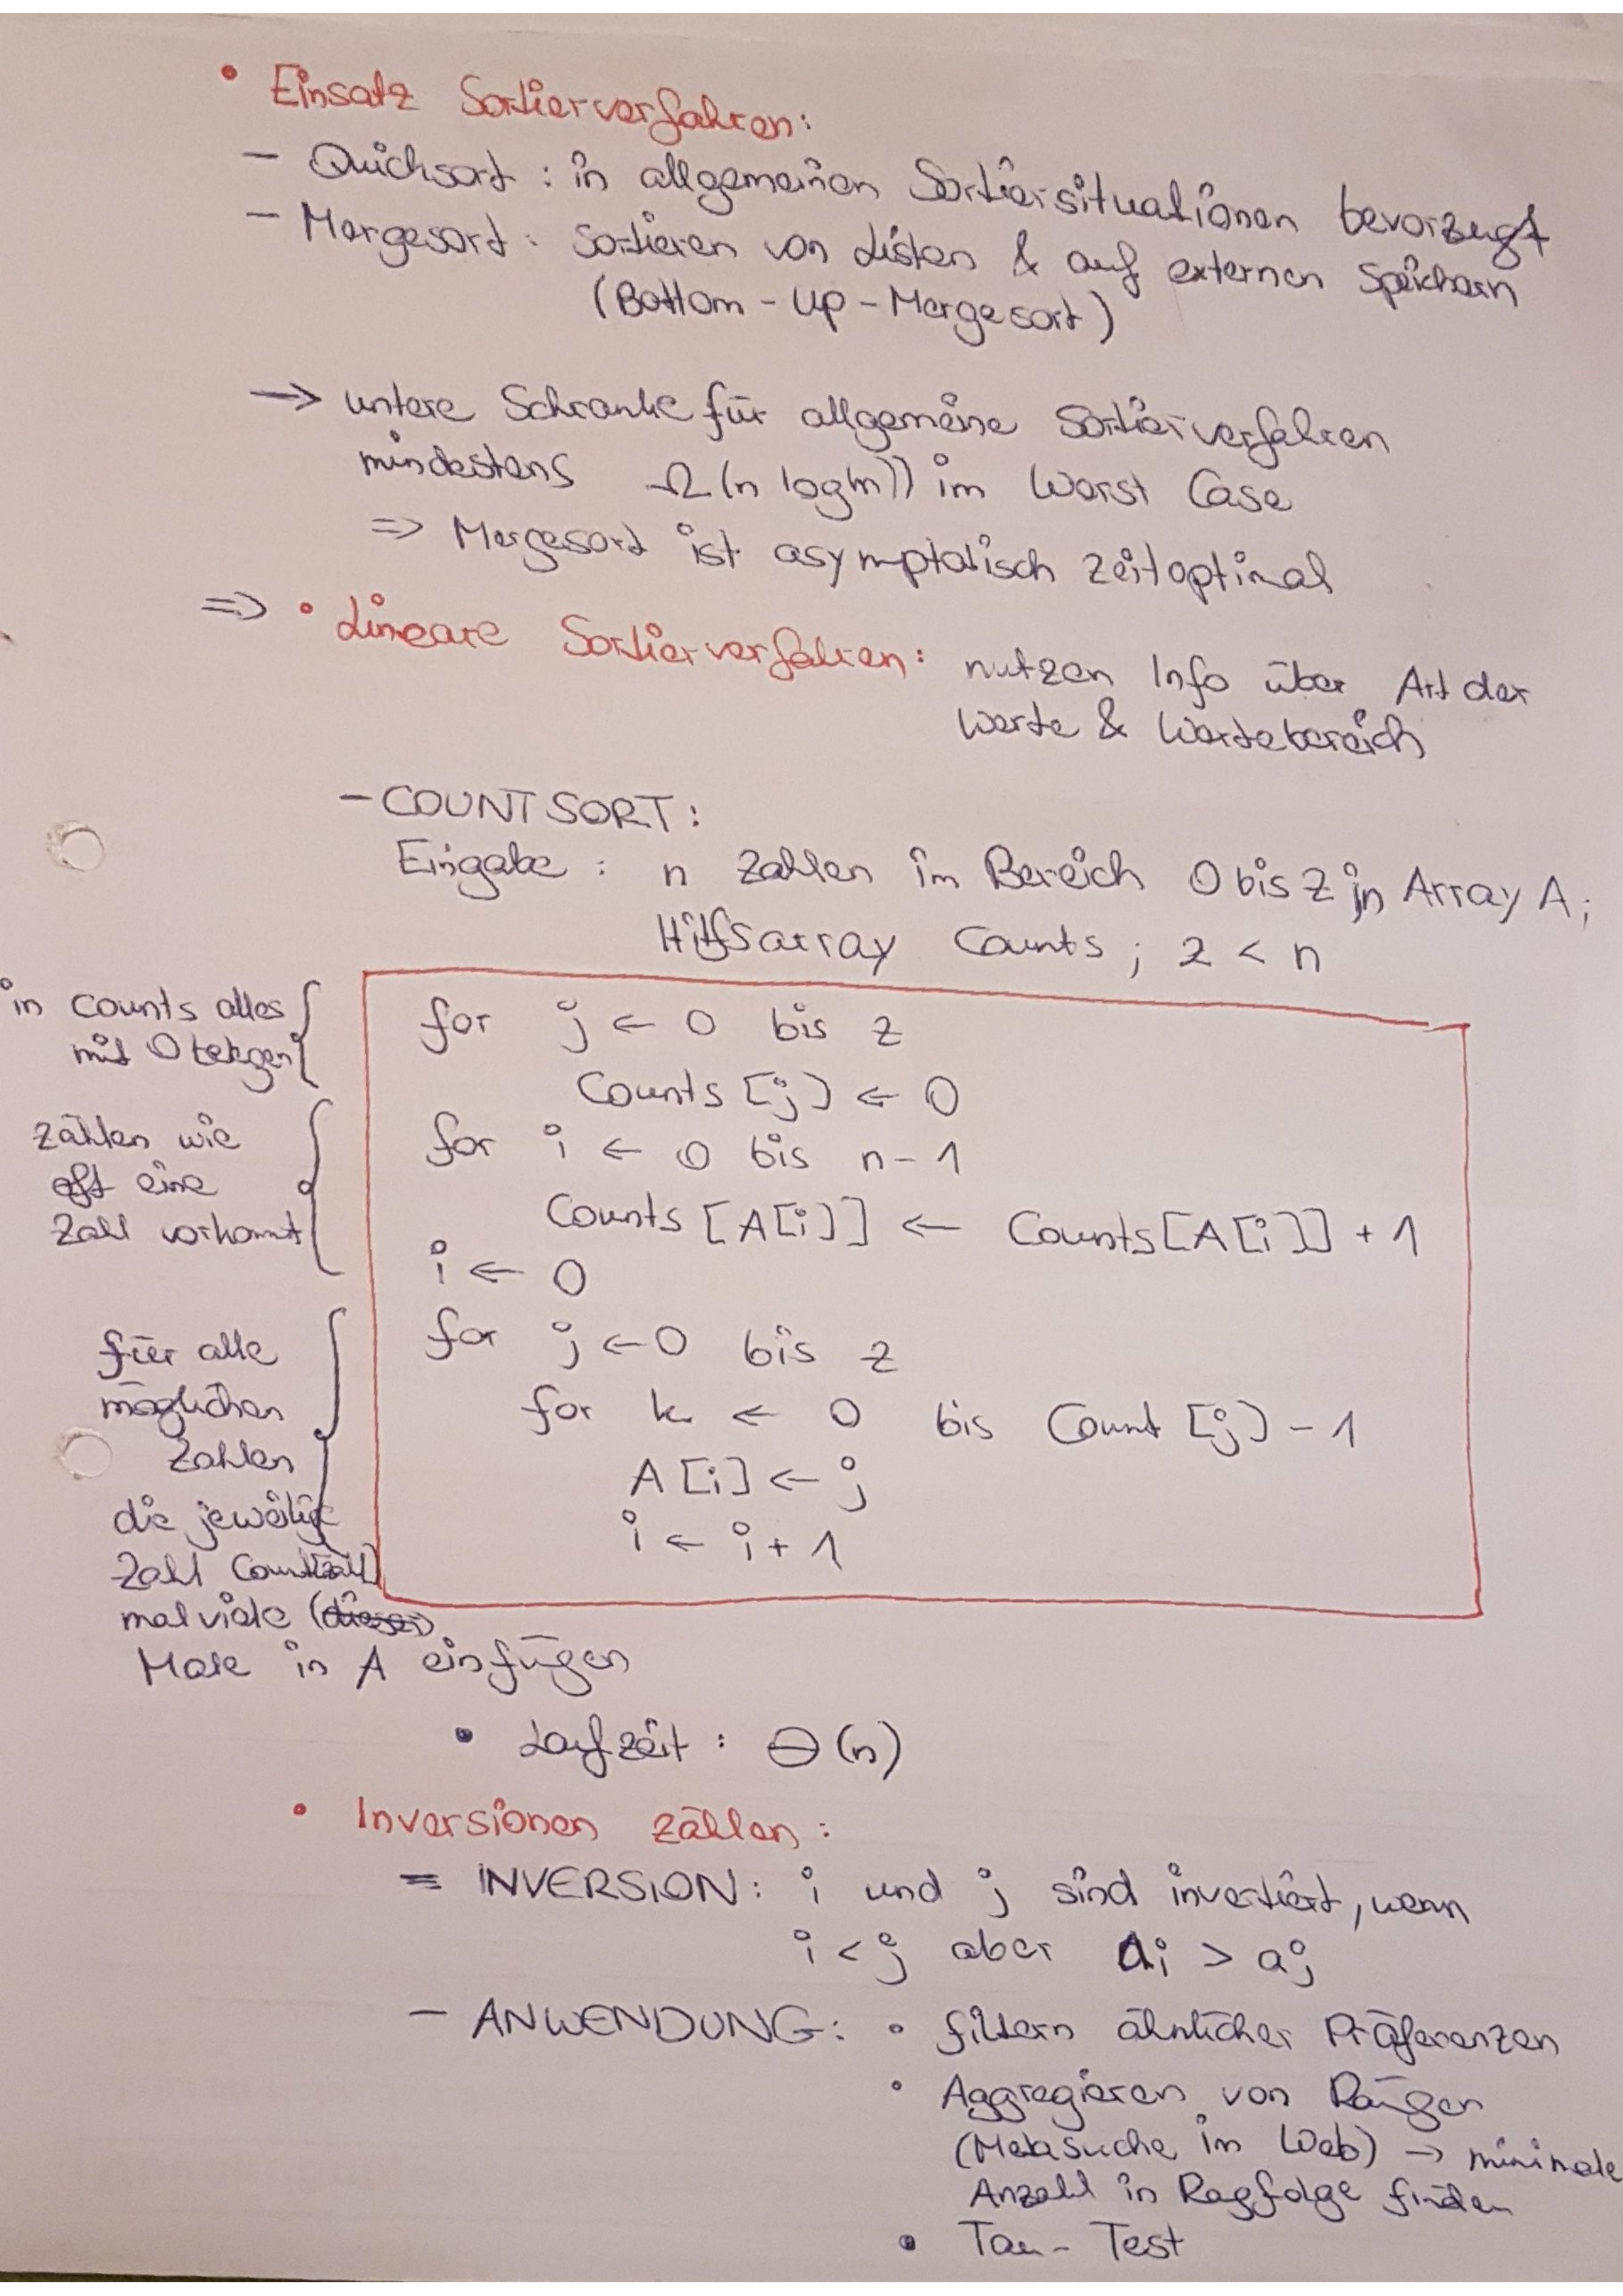 • Einsatz Sortierverfahren:
– Quicksort : in allgemeinen Sortiersituationen bevorzugt
– Mergesort : Sortieren von Listen & auf externen Speichern
(Bottom-Up-Mergesort)
→ untere Schranke für allgemeine Sortierverfahren
mindestens Ω(n log(n)) im Worst Case
⇒ Mergesort ist asymptotisch zeitoptimal
⇒ • Lineare Sortierverfahren: nutzen Info über Art der
Werte & Wertebereich
– COUNTSORT:
Eingabe : n Zahlen im Bereich 0 bis z in Array A;
Hilfsarray Counts ; z < n
in Counts alles
mit 0 belegen
for j ← 0 bis z
Counts [j] ← 0
zählen wie
oft eine
Zahl vorkommt
for i ← 0 bis n-1
Counts [A[i]] ← Counts[A[i]] + 1
i ← 0
für alle
möglichen
Zahlen
die jeweilige
Zahl Count[Zahl]
mal viele (dieser)
Male in A einfügen
for j ← 0 bis z
for k ← 0 bis Count [j] - 1
A[i] ← j
i ← i + 1
• Laufzeit : Θ(n)
• Inversionen zählen :
= INVERSION: i und j sind invertiert, wenn
i < j aber ai > aj
– ANWENDUNG: • filtern ähnlicher Präferenzen
• Aggregieren von Rängen
(Metasuche im Web) → minimale
Anzahl in Ragfolge finden
• Tau-Test